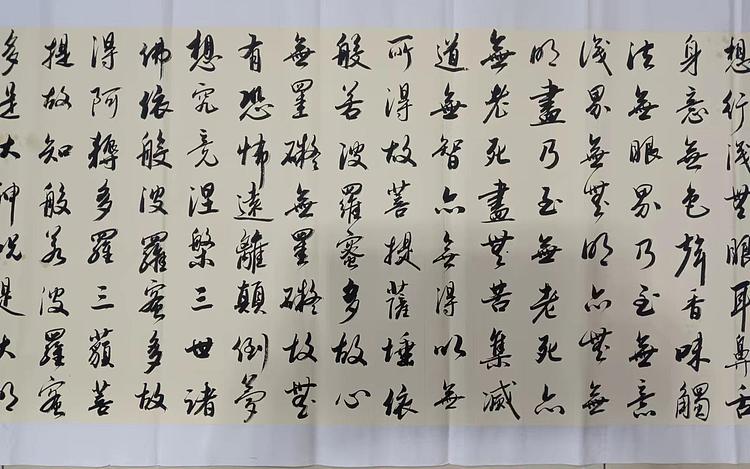 想行識無眼耳鼻舌
身意無色聲香味觸
法無眼界乃至無意
識界無無明亦無無
明盡乃至無老死亦
無老死盡無苦集滅
道無智亦無得以無
所得故菩提薩埵依
般若波羅蜜多故心
無罣礙無罣礙故無
有恐怖遠離顛倒夢
想究竟涅槃三世諸
佛依般波羅蜜多故
得阿耨多羅三藐菩
提故知般若波羅蜜
多是大神咒是大明